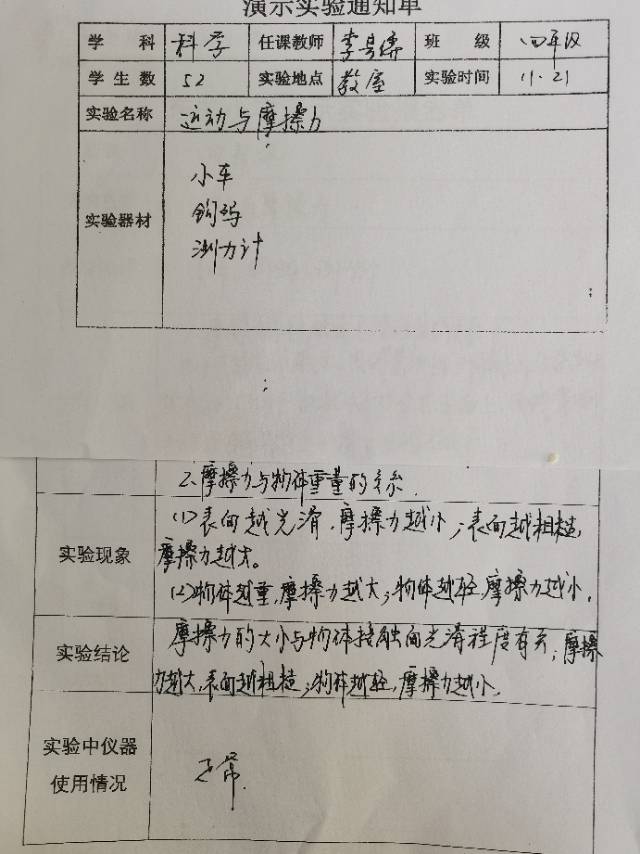 演示实验通知单
学 科 科学 任课教师 李 班 级 四年级
学 生 数 52 实验地点 教室 实验时间 11.21
实验名称 运动与摩擦力
实验器材
小车
钩码
测力计
2、摩擦力与物体重量的关系.
实验现象
(1)表面越光滑,摩擦力越小;表面越粗糙,
摩擦力越大。
(2)物体越重,摩擦力越大;物体越轻,摩擦力越小.
实验结论
摩擦力的大小与物体接触面光滑程度有关;摩擦
力越大,表面越粗糙;物体越轻,摩擦力越小.
实验中仪器
使用情况
正常.